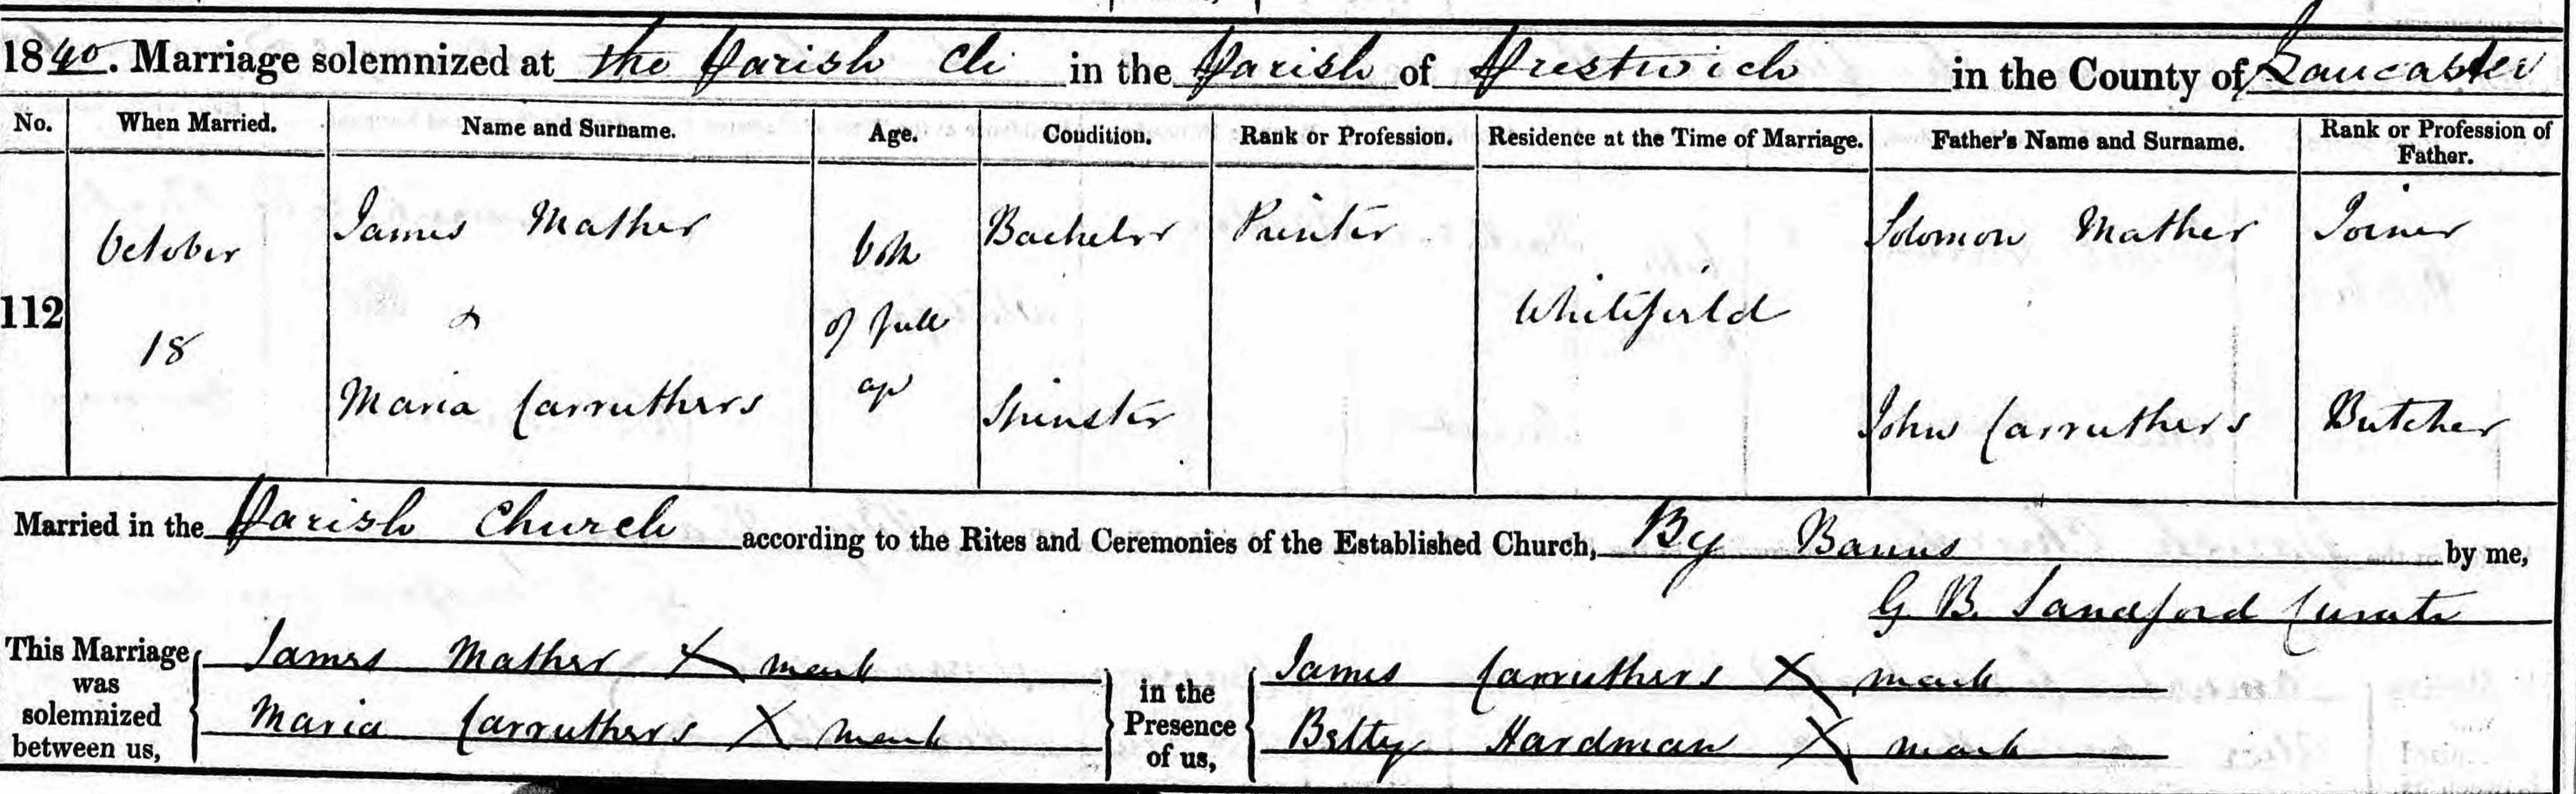 1840. Marriage solemnized at the Parish Ch in the Parish of Prestwich in the County of Lancaster
No. When Married. Name and Surname. Age. Condition. Rank or Profession. Residence at the Time of Marriage. Father's Name and Surname. Rank or Profession of Father.
112 October 18 James Mather & Maria Carruthers both of full age Bachelor Spinster Printer Whitefield Solomon Mather John Carruthers Joiner Butcher
Married in the Parish Church according to the Rites and Ceremonies of the Established Church, By Banns by me,
G. B. Sandford Curate
This Marriage was solemnized between us,
James Mather X mark
Maria Carruthers X mark
in the Presence of us,
James Carruthers X mark
Betty Hardman X mark